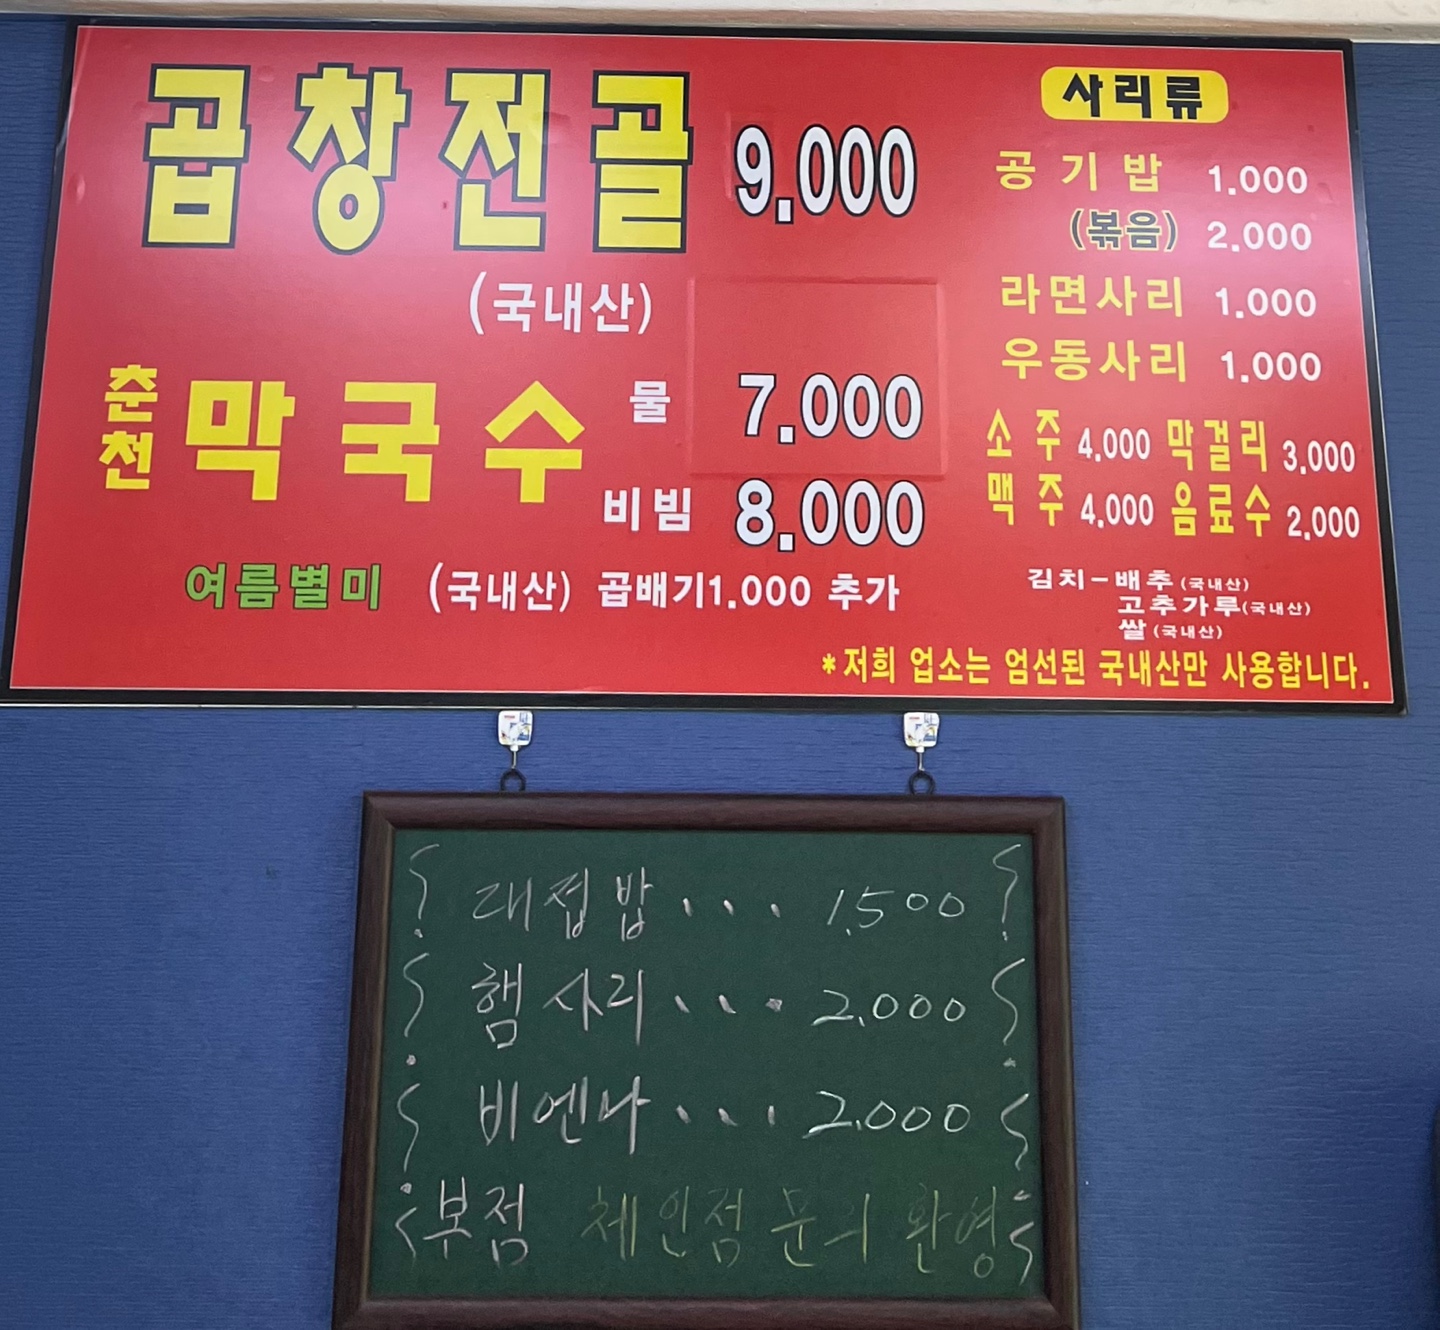 곱창전골 9.000
(국내산)
춘천 막국수 물 7.000
비빔 8.000
여름별미 (국내산) 곱배기1.000 추가
사리류
공기밥 1.000
(볶음) 2.000
라면사리 1.000
우동사리 1.000
소주 4,000 막걸리 3,000
맥주 4,000 음료수 2,000
김치-배추(국내산)
고추가루(국내산)
쌀(국내산)
*저희 업소는 엄선된 국내산만 사용합니다.
대접밥... 1.500
햄사리... 2.000
비엔나... 2.000
본점 체인점 문의 환영